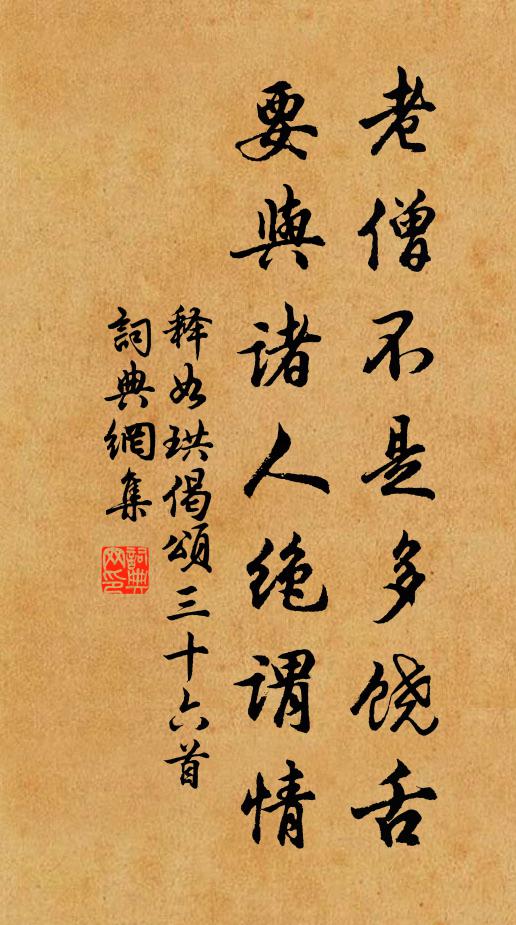 老僧不是多饶舌
要與诸人绝謂情
释如珙偈頌三十六首
詞典網集
詞典
网印